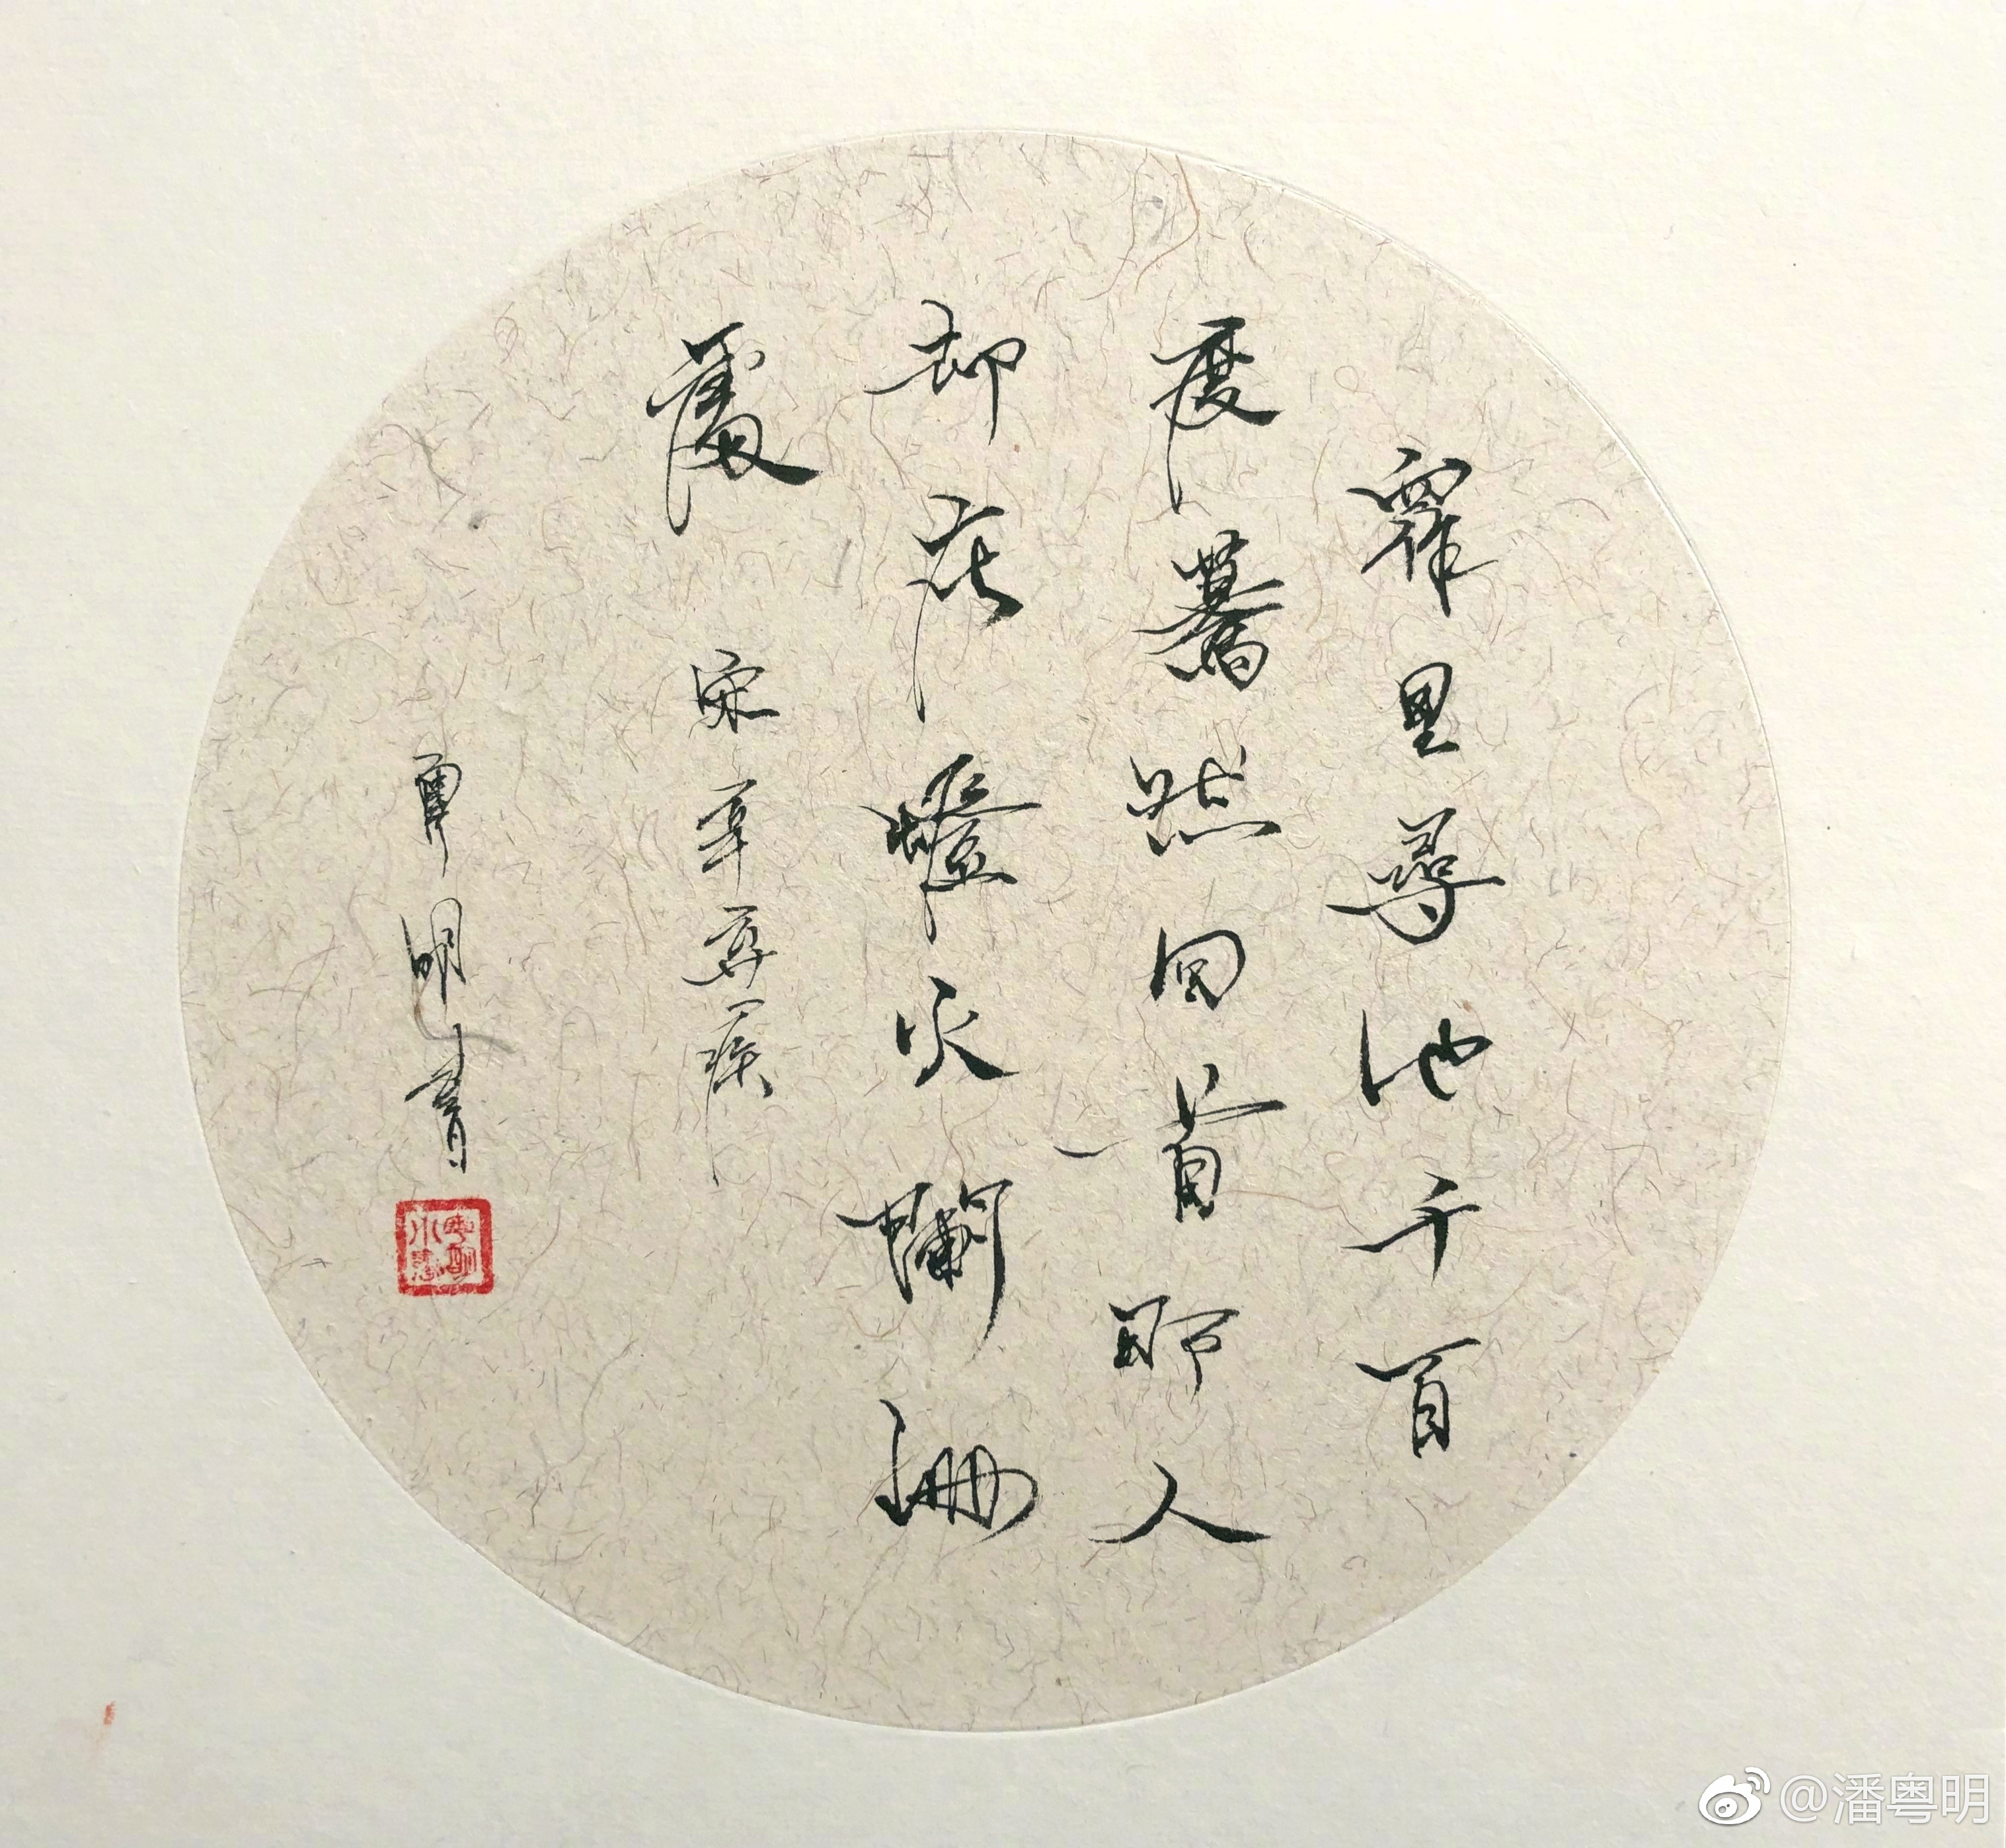 眾里尋他千百
度驀然回首那人
却在燈火闌珊
處 宋 辛弃疾
粤明書
@潘粤明